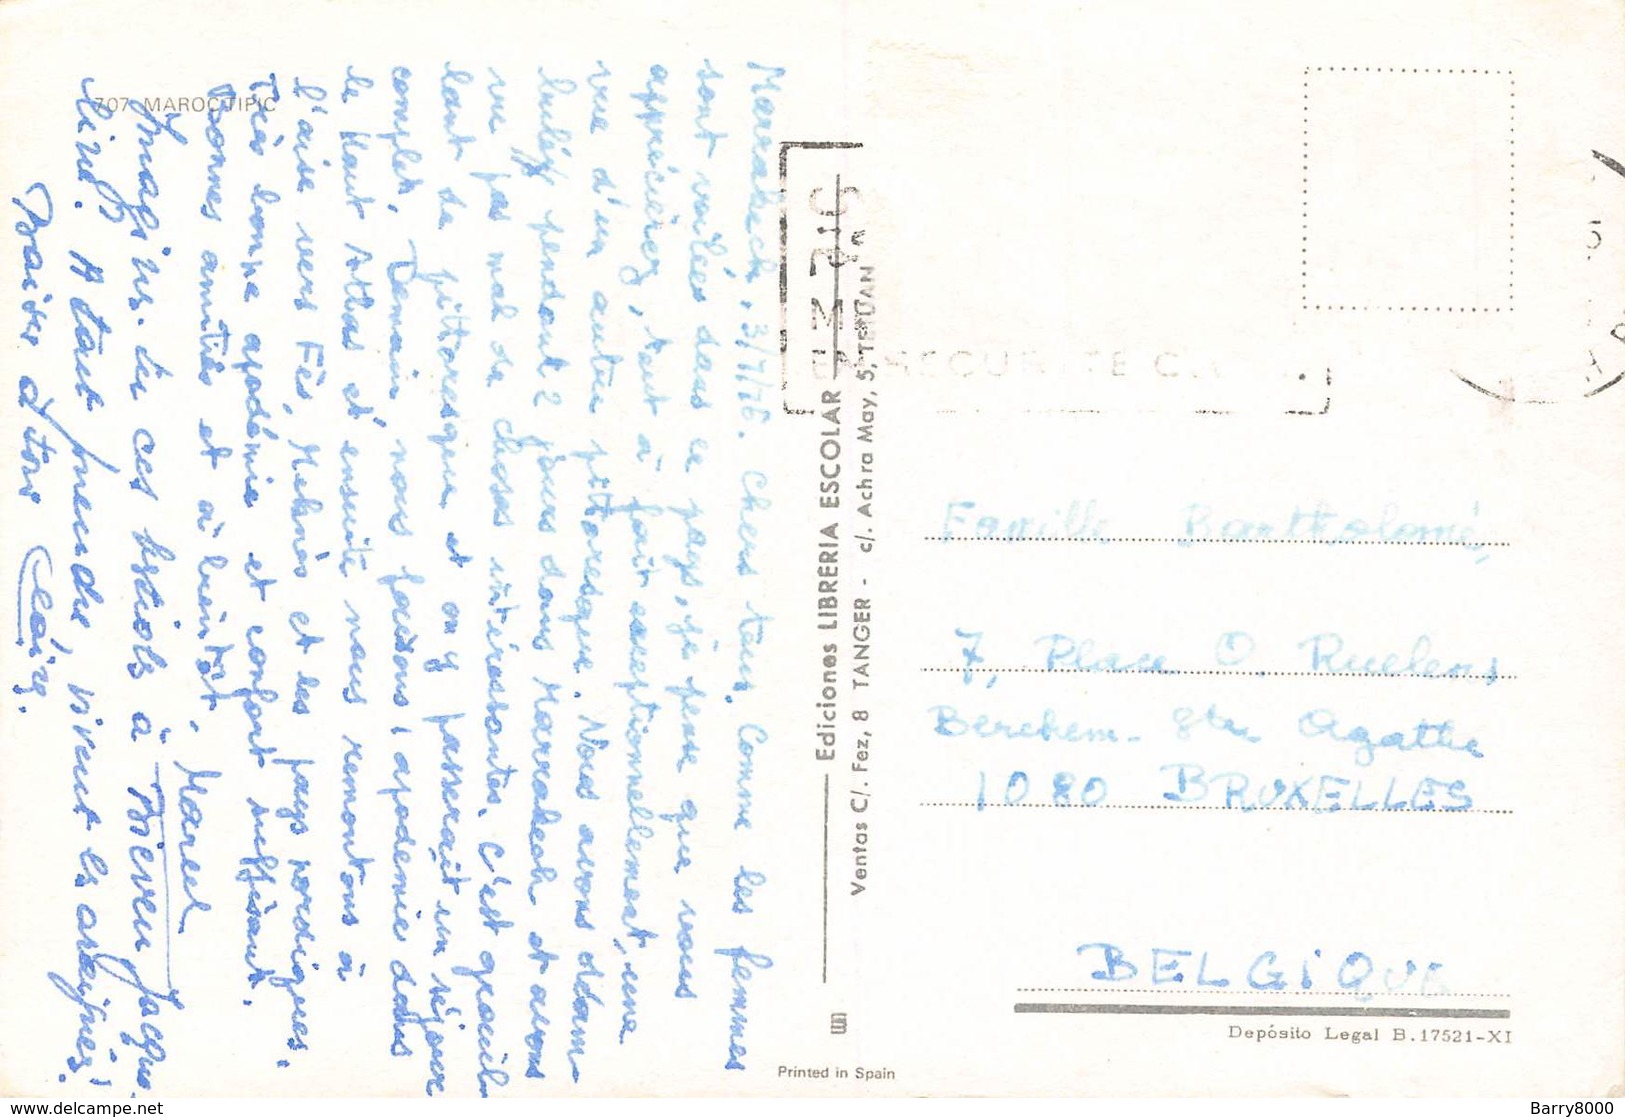 707 MAROC TIPIC
Marrakech, 3/7/76. Chers tous. Comme les femmes
sont voilées dans le pays, je pense que vous
apprécierez, tout à fait exceptionnellement, une
vue d'un autre pittoresque. Nous avons
pendant 2 jours dans Marrakech et avons
vu pas mal de choses intéressantes. C'est
tant de pittoresque et on y passerait un séjour
complet. Demain, nous faisons, apodemie dans
le Haut Atlas et ensuite nous remontons à
l'aise vers Fès, Meknès et les pays nordiques.
Très bonne apodémie et confort suffisant.
Bonnes amitiés et à bientôt, Marcel
Imagines-tu ces bestiols à Bieren Jacques
A tout prendre, vivent les araignées!
Baisers à tous Claire.
Ediciones LIBRERIA ESCOLAR
Ventas C/. Fez, 8 TANGER - c/. Achra May, 5, TETUAN
Famille Bartholomé,
7, Place O. Ruelens
Berchem-Ste Agathe
1080 BRUXELLES
BELGIQUE
Depósito Legal B. 17521-XI
Printed in Spain
delcampe.net
Barry8000